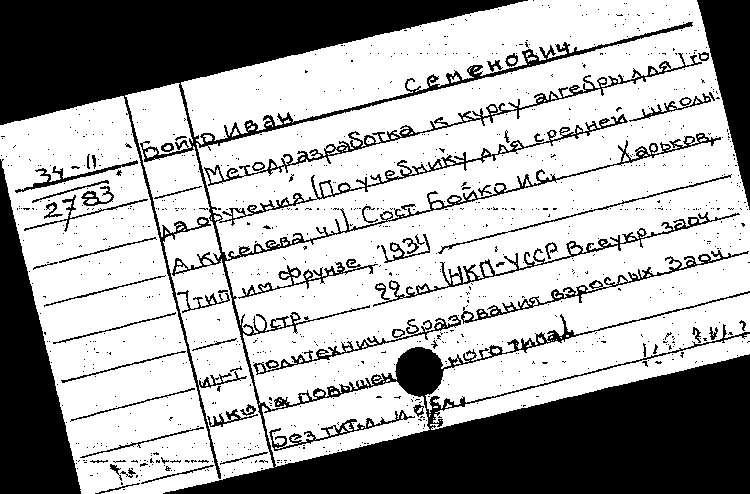 34-11
2783
Бойко Иван Семенович.
Методразработка к курсу алгебры для 1го
да обучения. (По учебнику для средней школы
А. Киселева, ч.1). Сост. Бойко И.С. Харьков,
7тип. им Фрунзе, 1934
60стр. 22см. (НКП-УССР Всеукр. заоч.
ин-т политехнич. образования взрослых. Заоч.
школа повышен ного типа).
Без тит.л. и обл.